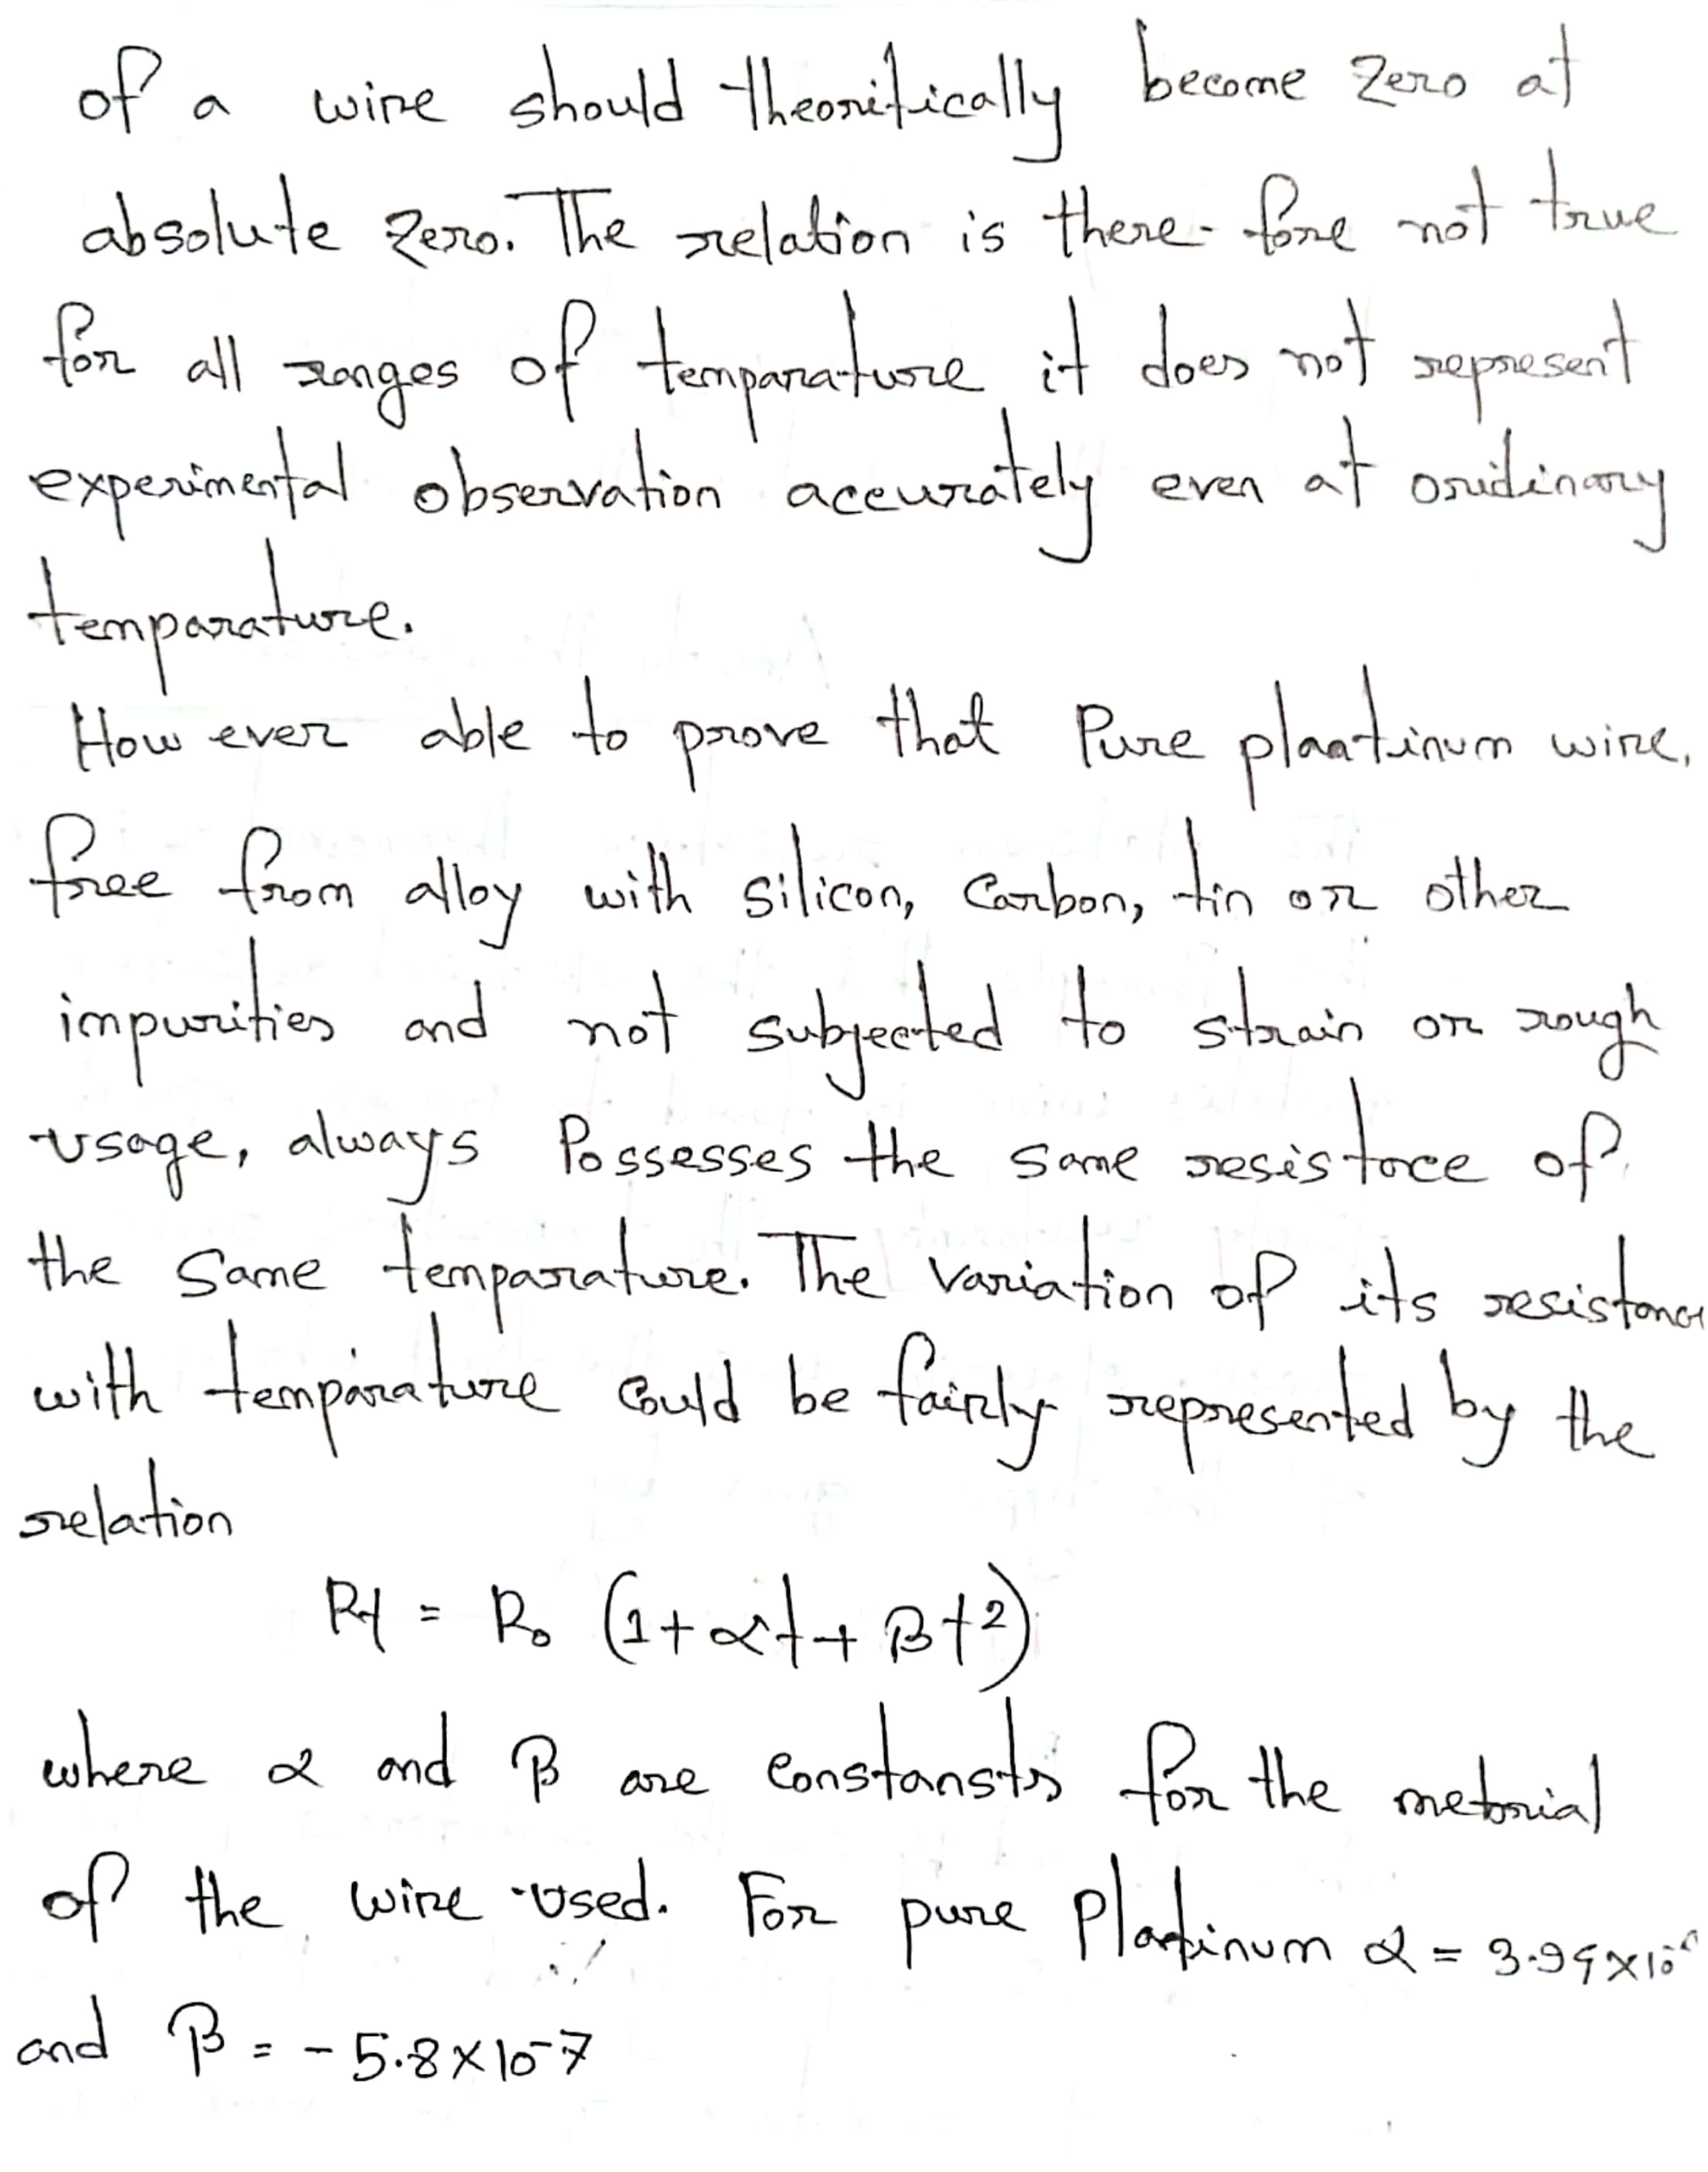 of a wire should theoritically become zero at
absolute zero. The relation is there-fore not true
for all ranges of temparature it does not represent
experimental observation accurately even at oridinary
temparature.
How ever able to prove that Pure plaatinum wire,
free from alloy with silicon, Carbon, tin or other
impurities and not subjected to strain or rough
usage, always Possesses the same resistace of
the same temparature. The variation of its resistance
with temparature could be fairly represented by the
relation
Rt = R₀ (1+αt+βt²)
where α and β are constansts for the meterial
of the wire used. For pure Platinum α = 3.94×10
and β = -5.8×10-7